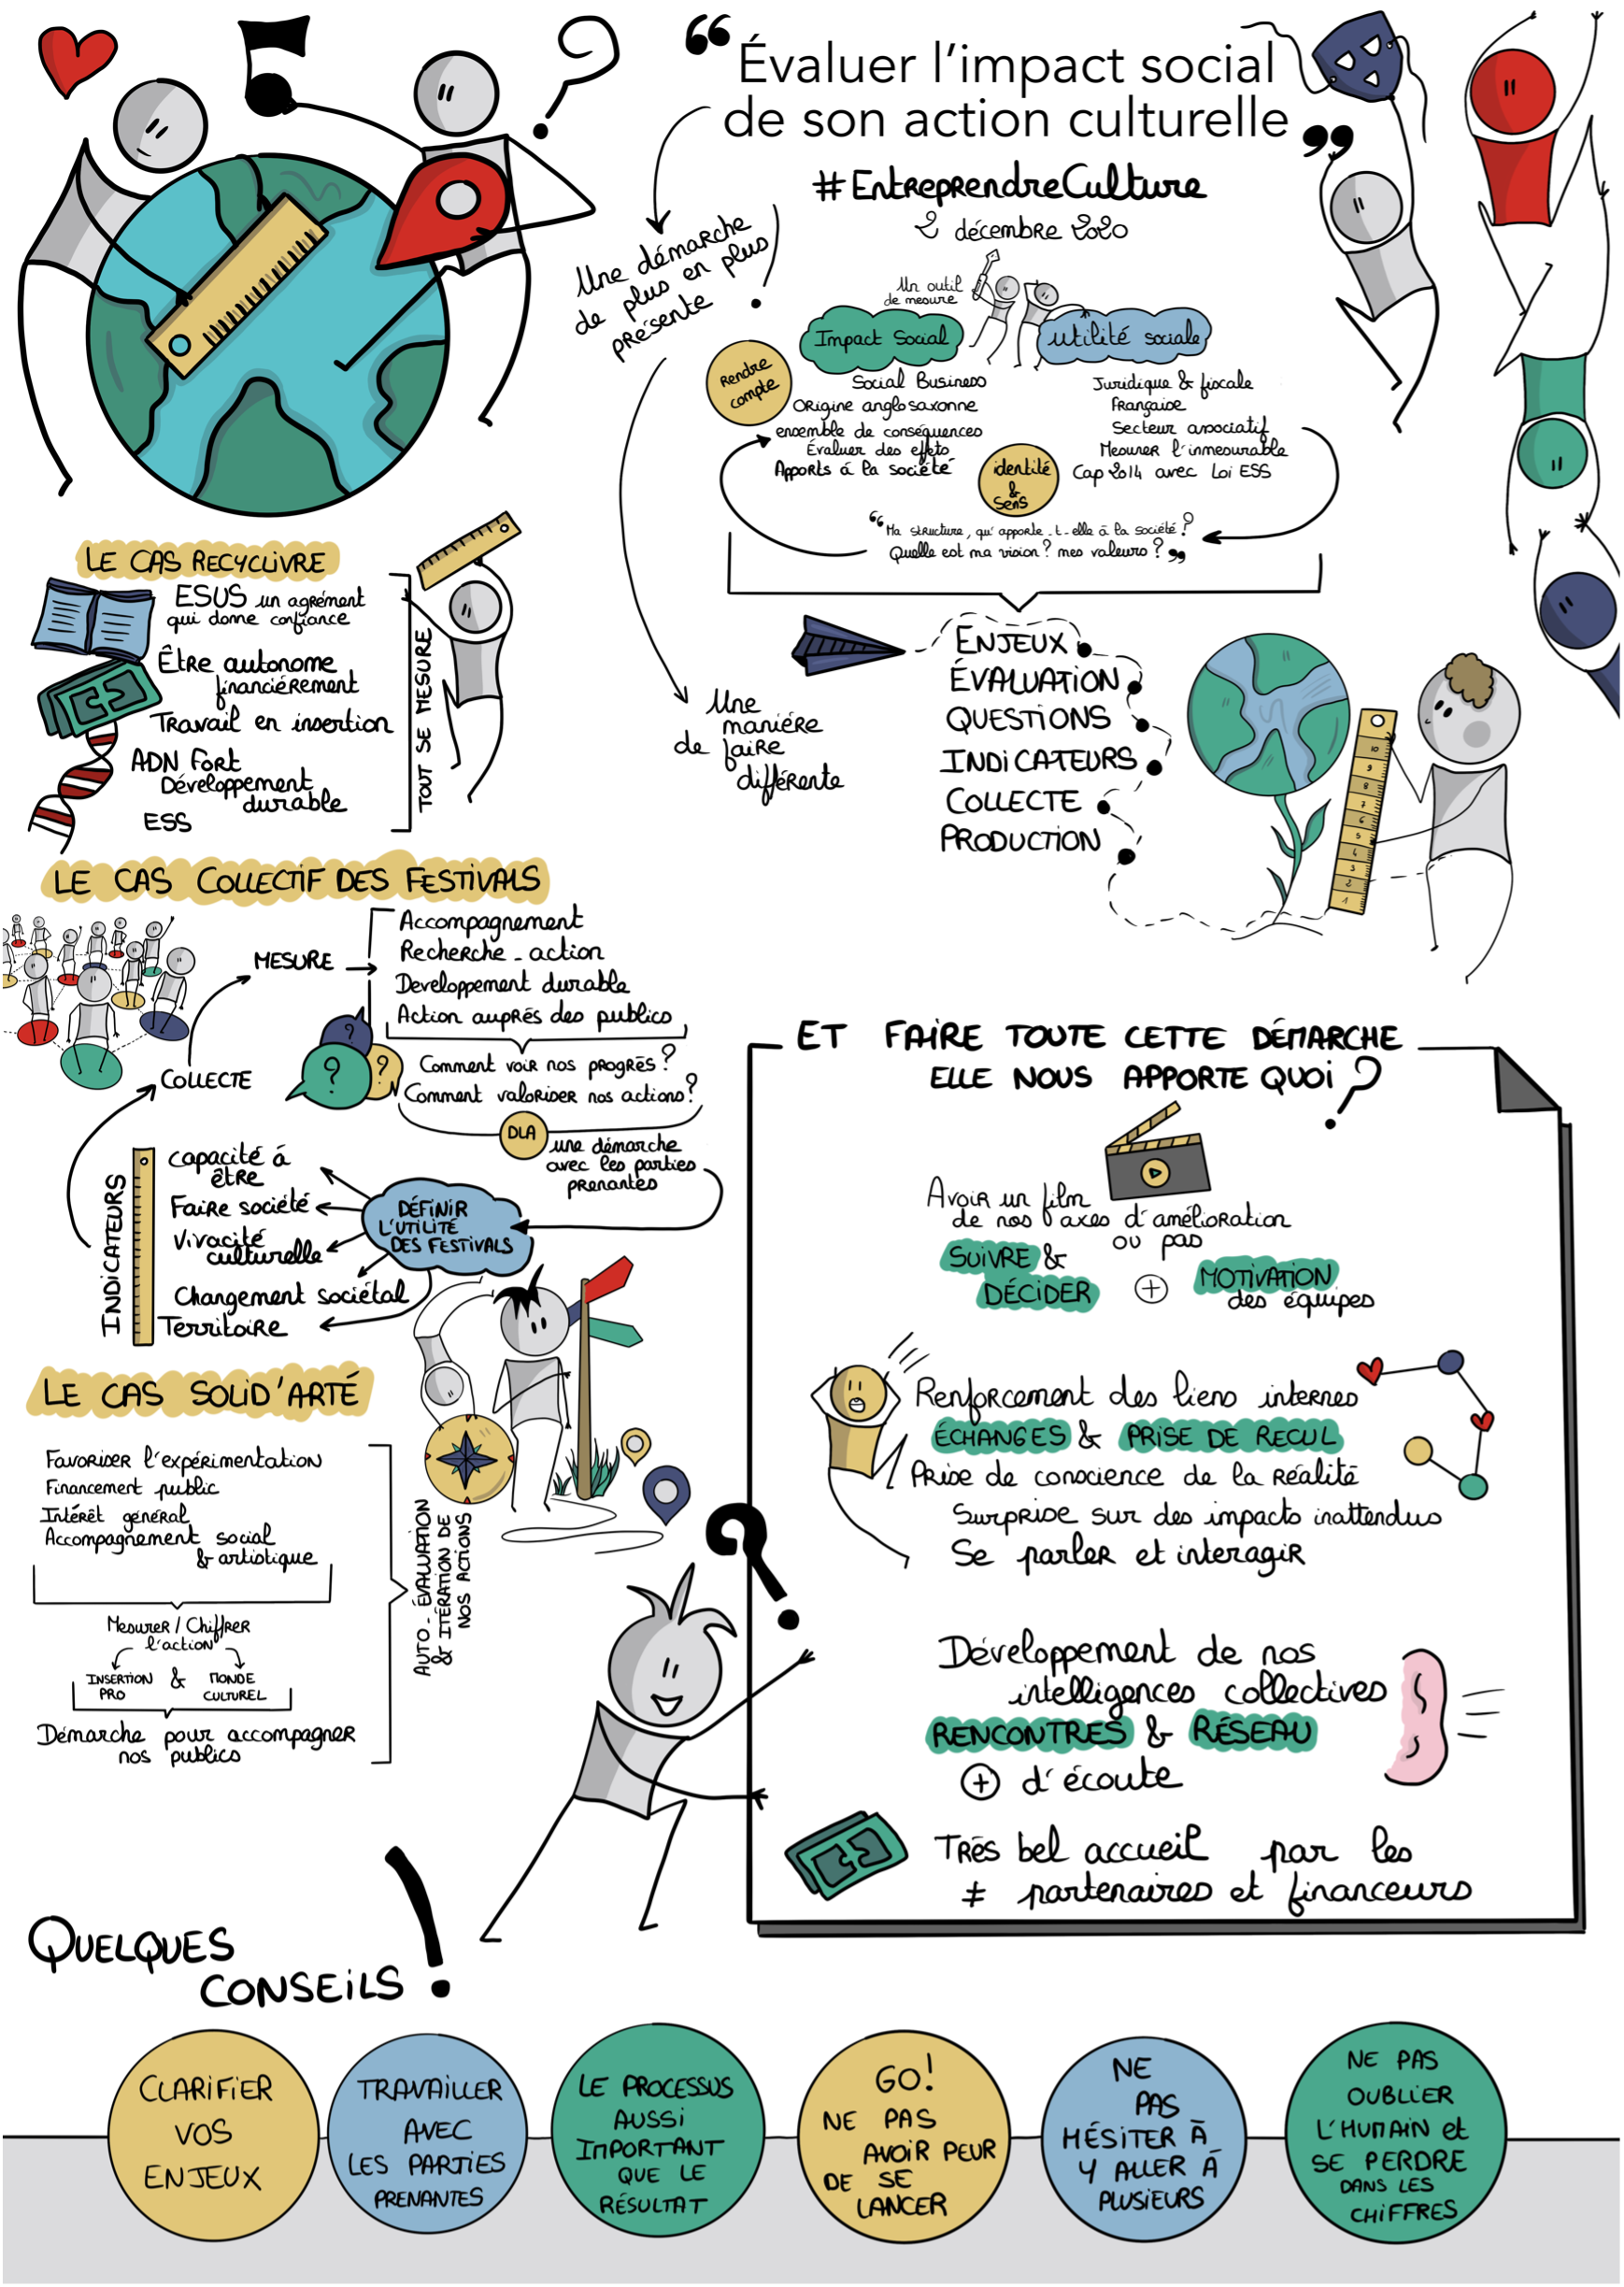 “ Évaluer l’impact social
de son action culturelle ”
#EntreprendreCulture
2 décembre 2020
Une démarche
de plus en plus
présente !
Une
manière
de faire
différente
Un outil
de mesure
Impact Social
utilité sociale
Rendre
compte
Social Business
Origine anglo saxonne
ensemble de conséquences
Évaluer des effets
Apports à la société
Juridique & fiscale
Française
Secteur associatif
Mesurer l'inmesurable
Cap 2014 avec Loi ESS
identité
&
sens
“ Ma structure, qu'apporte-t-elle à la société ?
Quelle est ma vision ? mes valeurs ? ”
ENJEUX
ÉVALUATION
QUESTIONS
INDICATEURS
COLLECTE
PRODUCTION
10
9
8
7
6
5
4
3
2
1
LE CAS RECYCLIVRE
ESUS un agrément
qui donne confiance
Être autonome
financièrement
Travail en insertion
ADN Fort
Développement
durable
ESS
TOUT SE MESURE
LE CAS COLLECTIF DES FESTIVALS
MESURE
Accompagnement
Recherche - action
Developpement durable
Action auprès des publics
?
?
?
Comment voir nos progrès ?
Comment valoriser nos actions ?
DLA
une démarche
avec les parties
prenantes
COLLECTE
DÉFINIR
L'UTILITÉ
DES FESTIVALS
INDICATEURS
capacité à
être
Faire société
Vivacité
culturelle
Changement sociétal
Territoire
LE CAS SOLID'ARTÉ
Favoriser l'expérimentation
Financement public
Intérêt général
Accompagnement social
& artistique
Mesurer / Chiffrer
l'action
INSERTION
PRO
&
MONDE
CULTUREL
Démarche pour accompagner
nos publics
AUTO - ÉVALUATION
& ITÉRATION DE
NOS ACTIONS
ET FAIRE TOUTE CETTE DÉMARCHE
ELLE NOUS APPORTE QUOI ?
Avoir un film
de nos axes d'amélioration
ou pas
SUIVRE &
DÉCIDER
+
MOTIVATION
des équipes
Renforcement des liens internes
ÉCHANGES & PRISE DE RECUL
Prise de conscience de la réalité
Surprise sur des impacts inattendus
Se parler et interagir
Développement de nos
intelligences collectives
RENCONTRES & RÉSEAU
+ d'écoute
Très bel accueil par les
≠ partenaires et financeurs
QUELQUES
CONSEILS !
CLARIFIER
VOS
ENJEUX
TRAVAILLER
AVEC
LES PARTIES
PRENANTES
LE PROCESSUS
AUSSI
IMPORTANT
QUE LE
RÉSULTAT
GO !
NE PAS
AVOIR PEUR
DE SE
LANCER
NE
PAS
HÉSITER À
Y ALLER À
PLUSIEURS
NE PAS
OUBLIER
L'HUMAIN et
SE PERDRE
DANS LES
CHIFFRES